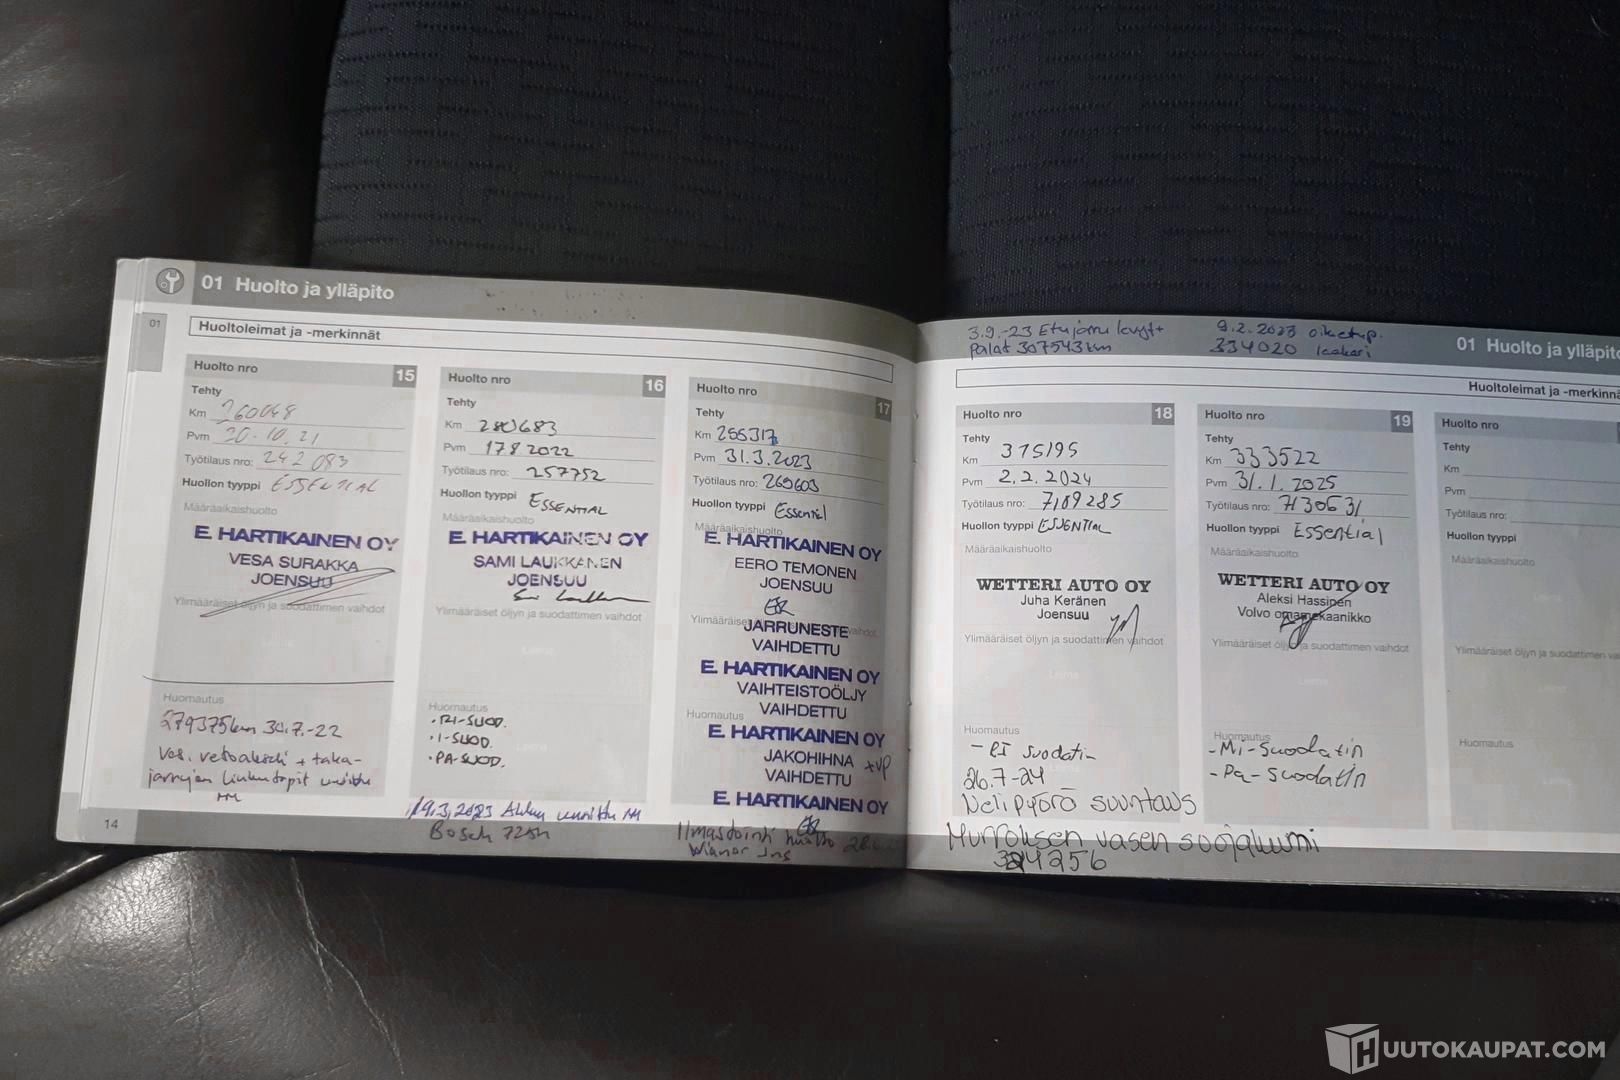 01 Huolto ja ylläpito
01
Huoltoleimat ja -merkinnät
Huolto nro 15
Tehty
Km 260048
Pvm 20.10.21
Työtilaus nro: 242 083
Huollon tyyppi ESSENTIAL
Määräaikaishuolto
E. HARTIKAINEN OY
VESA SURAKKA
JOENSUU
Ylimääräiset öljyn ja suodattimen vaihdot
Huomautus
279375km 30.7.-22
Vas. vetoakseli + taka-
jarrujen liukutapit uusittu
HM
14
Huolto nro 16
Tehty
Km 280683
Pvm 17.8.2022
Työtilaus nro: 257752
Huollon tyyppi ESSENTIAL
Määräaikaishuolto
E. HARTIKAINEN OY
SAMI LAUKKANEN
JOENSUU
Ylimääräiset öljyn ja suodattimen vaihdot
Leima
Huomautus
• RI-SUOD.
• I-SUOD.
• PA-SUOD.
19.3.2023 Akku uusittu HM
Bosch 72Ah
Huolto nro 17
Tehty
Km 295317
Pvm 31.3.2023
Työtilaus nro: 269603
Huollon tyyppi Essential
Määräaikaishuolto
E. HARTIKAINEN OY
EERO TEMONEN
JOENSUU
Ylimääräiset
vaihdot
JARRUNESTE
VAIHDETTU
E. HARTIKAINEN OY
VAIHTEISTOÖLJY
VAIHDETTU
Huomautus
E. HARTIKAINEN OY
JAKOHIHNA +VP
VAIHDETTU
E. HARTIKAINEN OY
Ilmastointi huolto
Wianor Jns
3.9.-23 Etujarru levyt+
Palat 307543km
9.2.2023 oiketup.
334020 laakeri
01 Huolto ja ylläpito
Huoltoleimat ja -merkinnä
Huolto nro 18
Tehty
Km 315195
Pvm 2.2.2024
Työtilaus nro: 7109285
Huollon tyyppi ESSENTIAL
Määräaikaishuolto
WETTERI AUTO OY
Juha Keränen
Joensuu
Ylimääräiset öljyn ja suodattimen vaihdot
Leima
Huomautus
- RI suodatin
26.7-24
Nelipyörä suuntaus
Murroksen vasen suojakumi
324256
Huolto nro 19
Tehty
Km 333522
Pvm 31.1.2025
Työtilaus nro: 7130631
Huollon tyyppi Essential
Määräaikaishuolto
WETTERI AUTO OY
Aleksi Hassinen
Volvo omamekaanikko
Ylimääräiset öljyn ja suodattimen vaihdot
Leima
Huomautus
- Mi-Suodatin
- Pa-Suodatin
Huolto nro
Tehty
Km
Pvm
Työtilaus nro:
Huollon tyyppi
Määräaikaishuolto
Ylimääräiset öljyn ja suodattimen va
Huomautus
HUUTOKAUPAT.COM